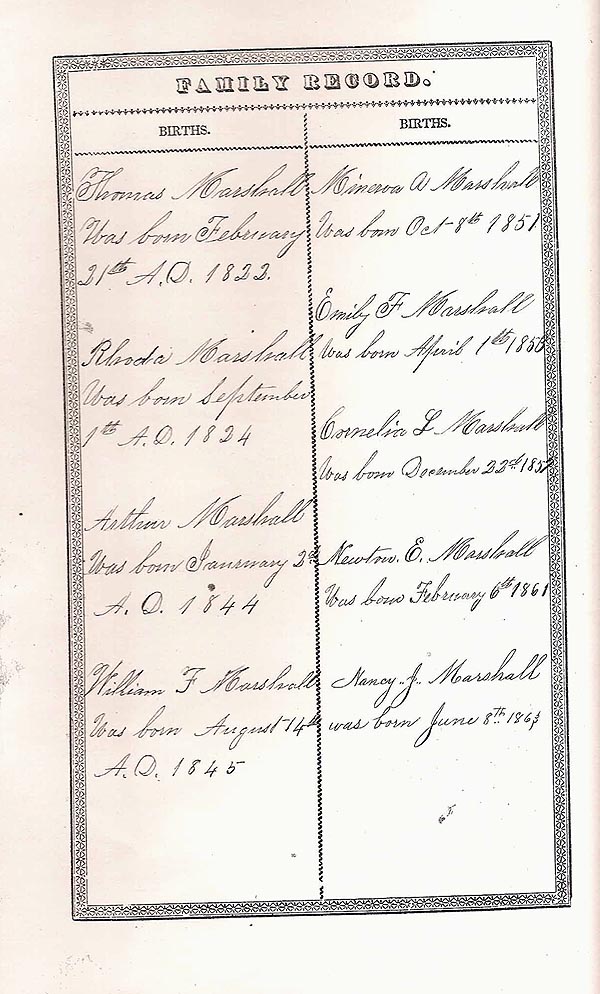 FAMILY RECORD.
BIRTHS.
Thomas Marshall
Was born February
21th A.D. 1822.
Rhoda Marshall
Was born September
1th A.D. 1824
Arthur Marshall
Was born Januruary 2d
A. D. 1844
William F Marshall
Was born August 14th
A. D. 1845
BIRTHS.
Minerva A Marshall
Was born Oct 8th 1851
Emily F Marshall
Was born April 1th
Cornelia L Marshall
Was born December 22cd
Newton. E. Marshall
Was born February 6th 1861
Nancy. J. Marshall
was born June 8th 1863